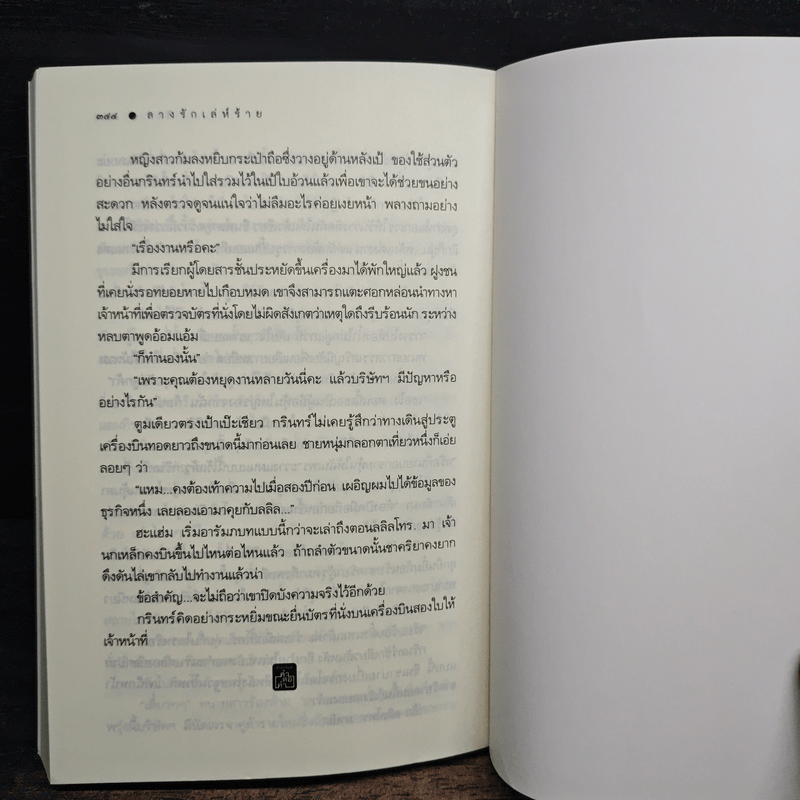 ๓๙๙ ● ลางรักเล่ห์ร้าย
หญิงสาวก้มลงหยิบกระเป๋าถือซึ่งวางอยู่ด้านหลังเป้ ของใช้ส่วนตัว
อย่างอื่นกรินทร์นำไปใส่รวมไว้ในเป้ใบอ้วนแล้วเพื่อเขาจะได้ช่วยขนอย่าง
สะดวก หลังตรวจดูจนแน่ใจว่าไม่ลืมอะไรค่อยเงยหน้า พลางถามอย่าง
ไม่ใส่ใจ
“เรื่องงานหรือคะ”
มีการเรียกผู้โดยสารชั้นประหยัดขึ้นเครื่องมาได้พักใหญ่แล้ว ฝูงชน
ที่เคยนั่งรอทยอยหายไปเกือบหมด เขาจึงสามารถแตะศอกหล่อนนำทางหา
เจ้าหน้าที่เพื่อตรวจบัตรที่นั่งโดยไม่ผิดสังเกตว่าเหตุใดถึงรีบร้อนนัก ระหว่าง
หลบตาพูดอ้อมแอ้ม
“ก็ทำนองนั้น”
“เพราะคุณต้องหยุดงานหลายวันนี่คะ แล้วบริษัทฯ มีปัญหาหรือ
อย่างไรกัน”
ตูมเดียวตรงเป้าเป๊ะเชียว กรินทร์ไม่เคยรู้สึกว่าทางเดินสู่ประตู
เครื่องบินทอดยาวถึงขนาดนี้มาก่อนเลย ชายหนุ่มกลอกตาเที่ยวหนึ่งก็เอ่ย
ลอยๆ ว่า
“แหม...คงต้องเท้าความไปเมื่อสองปีก่อน เผอิญผมไปได้ข้อมูลของ
ธุรกิจหนึ่ง เลยลองเอามาคุยกับลลิล...”
ฮะแฮ่ม เริ่มอารัมภบทแบบนี้กว่าจะเล่าถึงตอนลลิลโทร. มา เจ้า
นกเหล็กคงบินขึ้นไปไหนต่อไหนแล้ว ถ้าถลำตัวขนาดนั้นชาคริยาคงยาก
ดึงดันไล่เขากลับไปทำงานแล้วน่า
ข้อสำคัญ...จะไม่ถือว่าเขาปิดบังความจริงไว้อีกด้วย
กรินทร์คิดอย่างกระหยิ่มขณะยื่นบัตรที่นั่งบนเครื่องบินสองใบให้
เจ้าหน้าที่